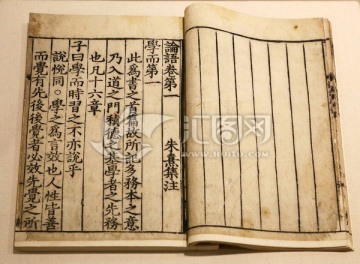 論語卷第一
朱熹集注
學而第一
此爲書之首篇故所記多務本之意
乃入道之門積德之基學者之先務
也凡十六章
子曰學而時習之不亦說乎
說悅同○學之爲言效也人性皆善
而覺有先後後覺者必效先覺之所
汇图网
www.huitu.com